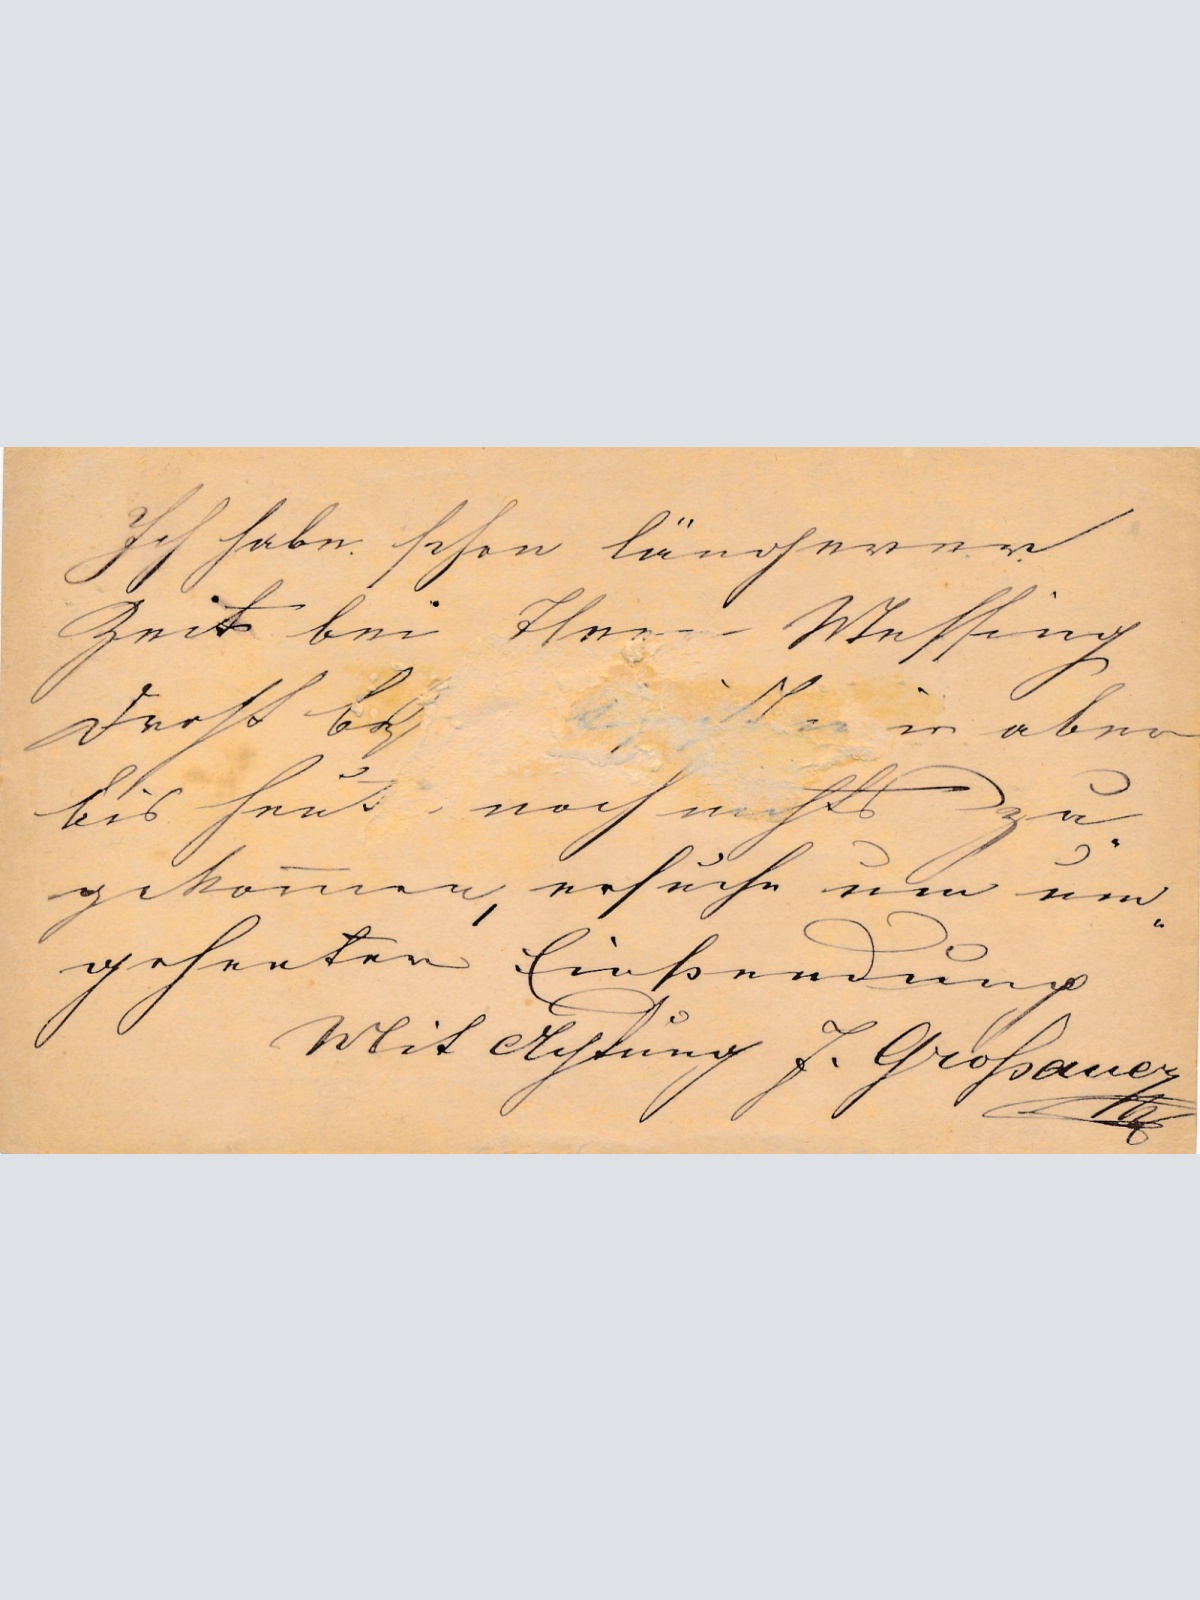 Ich habe schon längerer
Zeit bei Ihnen Messing
Draht be
aber
bis heut noch nichts zu„
gekom̅en, ersuche um um„
gehenter Einsendung
Mit Achtung J. Großauer